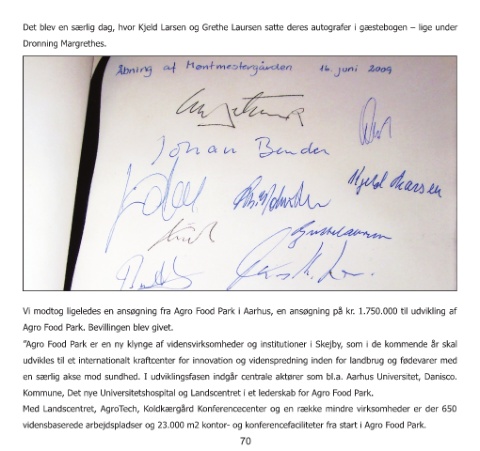 Det blev en særlig dag, hvor Kjeld Larsen og Grethe Laursen satte deres autografer i gæstebogen – lige under
Dronning Margrethes.
Åbning af Møntmestergården 16. juni 2009
Johan Bender
Kjeld Larsen
Vi modtog ligeledes en ansøgning fra Agro Food Park i Aarhus, en ansøgning på kr. 1.750.000 til udvikling af
Agro Food Park. Bevillingen blev givet.
”Agro Food Park er en ny klynge af vidensvirksomheder og institutioner i Skejby, som i de kommende år skal
udvikles til et internationalt kraftcenter for innovation og vidensspredning inden for landbrug og fødevarer med
en særlig akse mod sundhed. I udviklingsfasen indgår centrale aktører som bl.a. Aarhus Universitet, Danisco.
Kommune, Det nye Universitetshospital og Landscentret i et lederskab for Agro Food Park.
Med Landscentret, AgroTech, Koldkærgård Konferencecenter og en række mindre virksomheder er der 650
vidensbaserede arbejdspladser og 23.000 m2 kontor- og konferencefaciliteter fra start i Agro Food Park.
70